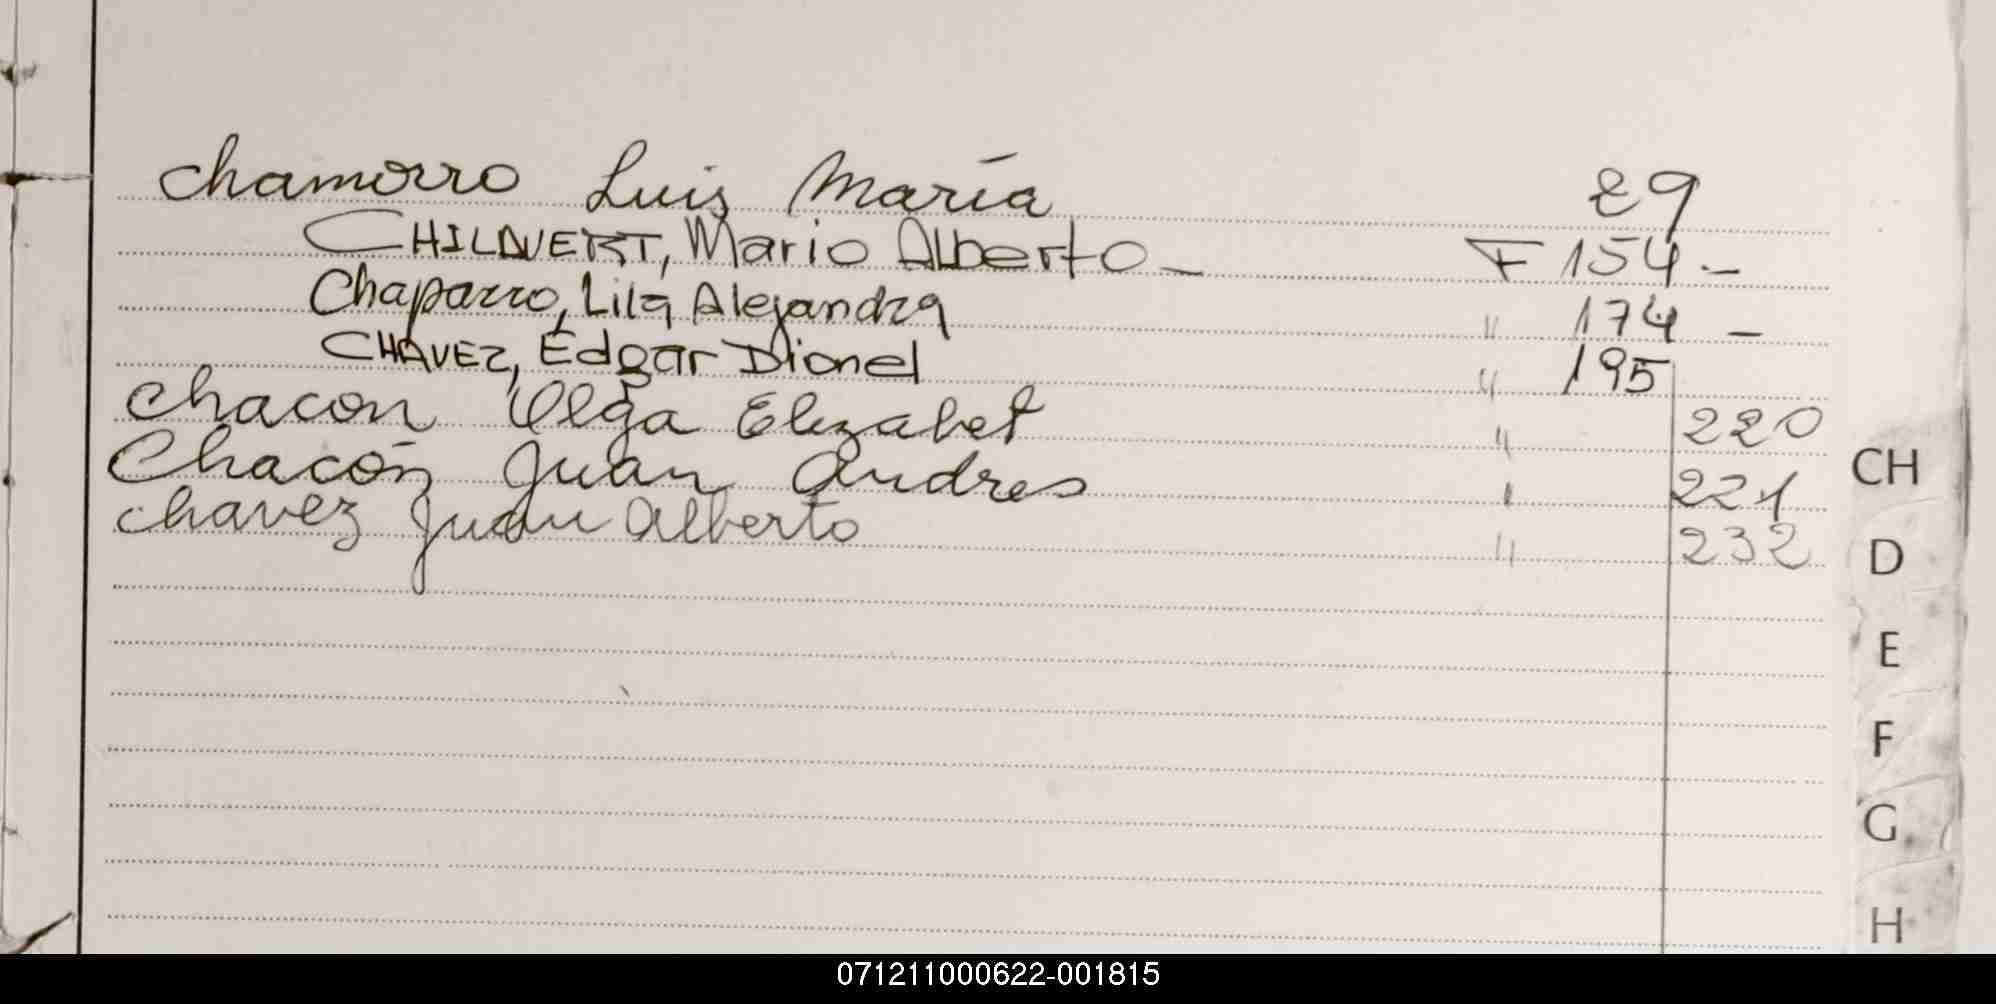 Chamorro Luis María 29
CHILAVERT, Mario Alberto - F 154.-
Chaparro, Lila Alejandra " 174 -
CHAVEZ, Edgar Dionel " 195
Chacon Olga Elizabet " 220
Chacón Juan Andres " 221
Chavez Juan Alberto " 232
CH
D
E
F
G
H
071211000622-001815